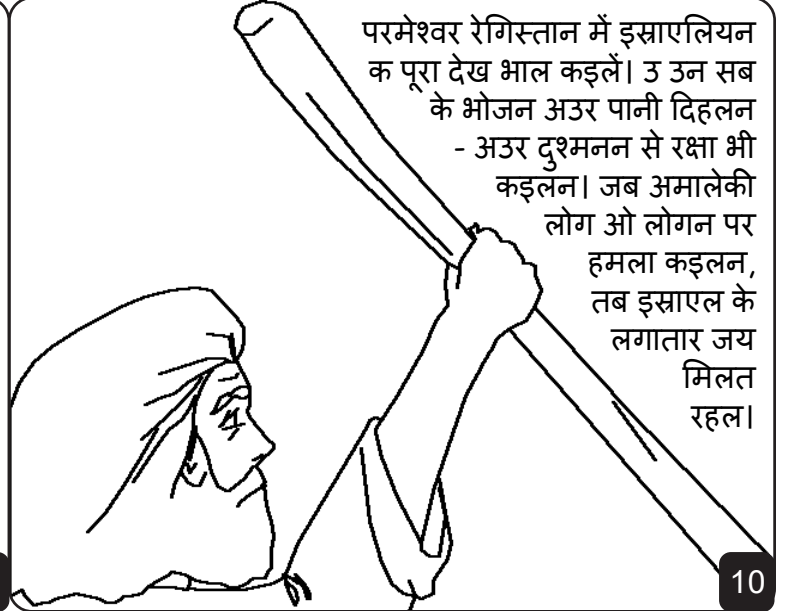 परमेश्वर रेगिस्तान में इस्राएलियन
क पूरा देख भाल कइलें। उ उन सब
के भोजन अउर पानी दिहलन
- अउर दुश्मनन से रक्षा भी
कइलन। जब अमालेकी
लोग ओ लोगन पर
हमला कइलन,
तब इस्राएल के
लगातार जय
मिलत
रहल।
10